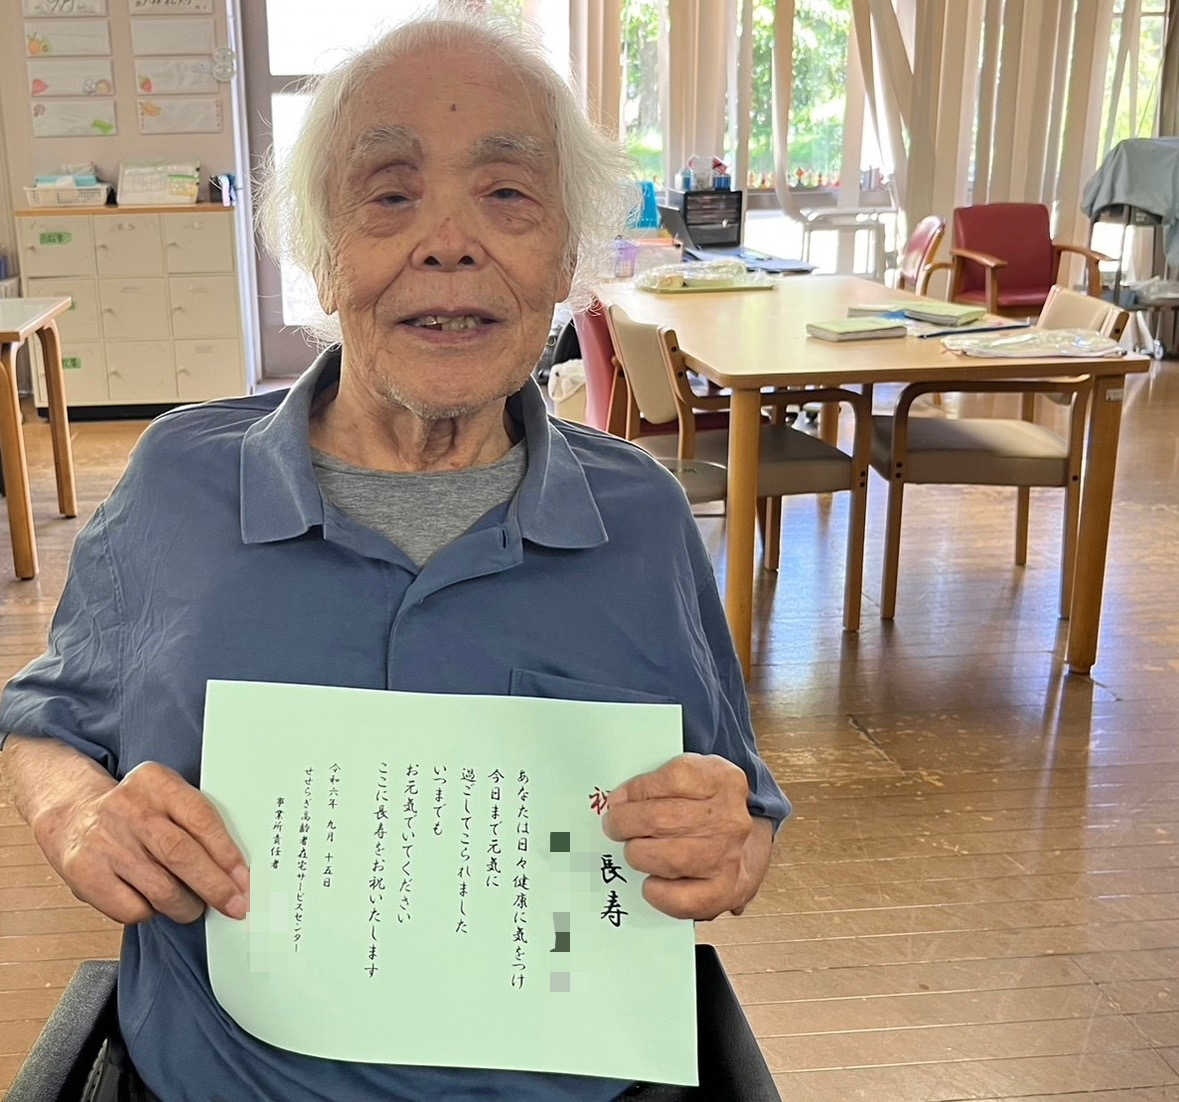 祝 長寿
あなたは日々健康に気をつけ
今日まで元気に
過ごしてこられました
いつまでも
お元気でいてください
ここに長寿をお祝いたします
令和六年 九月 十五日
せせらぎ高齢者在宅サービスセンター
事業所責任者